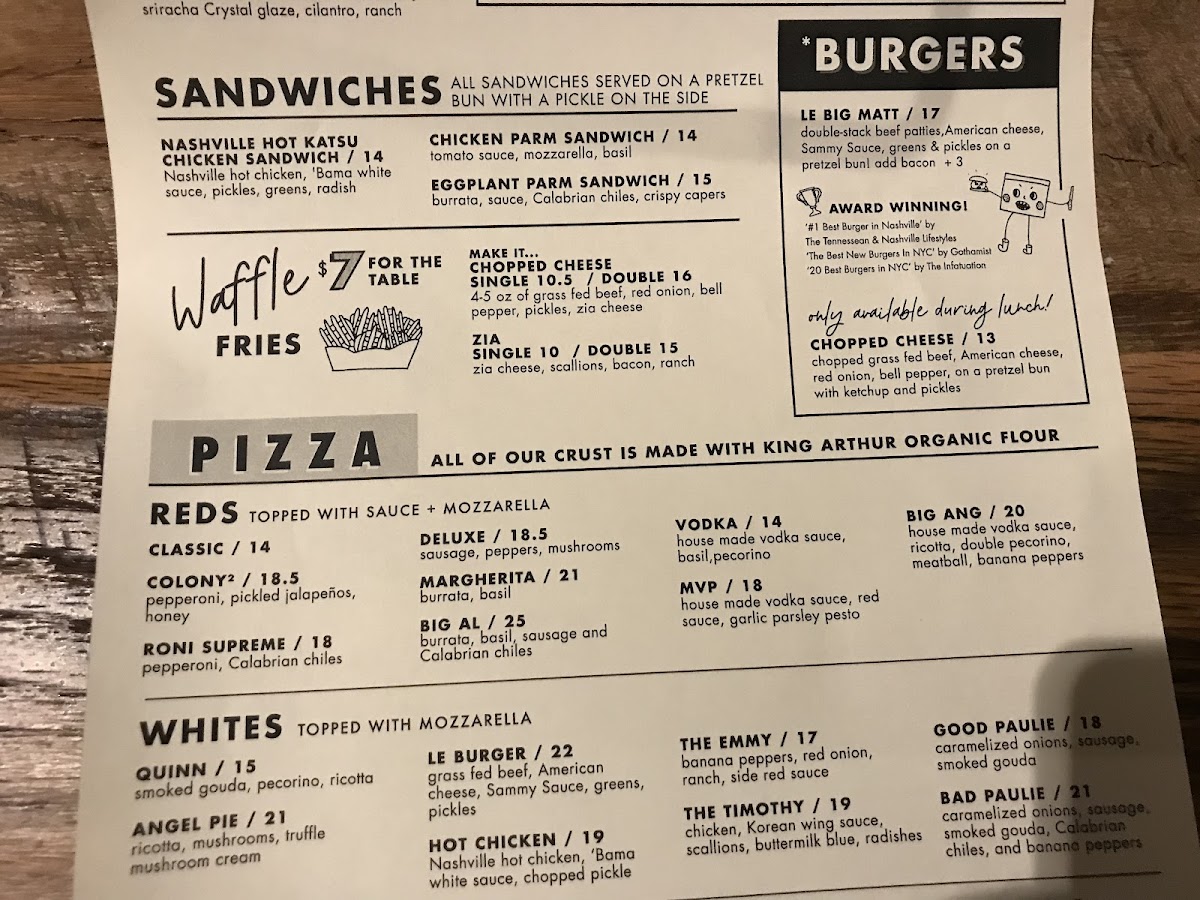 sriracha Crystal glaze, cilantro, ranch
SANDWICHES
ALL SANDWICHES SERVED ON A PRETZEL
BUN WITH A PICKLE ON THE SIDE
NASHVILLE HOT KATSU
CHICKEN SANDWICH / 14
Nashville hot chicken, 'Bama white
sauce, pickles, greens, radish
CHICKEN PARM SANDWICH / 14
tomato sauce, mozzarella, basil
EGGPLANT PARM SANDWICH / 15
burrata, sauce, Calabrian chiles, crispy capers
Waffle
FRIES
$7 FOR THE
TABLE
MAKE IT...
CHOPPED CHEESE
SINGLE 10.5 / DOUBLE 16
4-5 oz of grass fed beef, red onion, bell
pepper, pickles, zia cheese
ZIA
SINGLE 10 / DOUBLE 15
zia cheese, scallions, bacon, ranch
*BURGERS
LE BIG MATT / 17
double-stack beef patties,American cheese,
Sammy Sauce, greens & pickles on a
pretzel bun! add bacon + 3
AWARD WINNING!
'#1 Best Burger in Nashville' by
The Tennessean & Nashville Lifestyles
'The Best New Burgers In NYC' by Gothamist
'20 Best Burgers in NYC' by The Infatuation
only available during lunch!
CHOPPED CHEESE / 13
chopped grass fed beef, American cheese,
red onion, bell pepper, on a pretzel bun
with ketchup and pickles
PIZZA
ALL OF OUR CRUST IS MADE WITH KING ARTHUR ORGANIC FLOUR
REDS TOPPED WITH SAUCE + MOZZARELLA
CLASSIC / 14
COLONY² / 18.5
pepperoni, pickled jalapeños,
honey
RONI SUPREME / 18
pepperoni, Calabrian chiles
DELUXE / 18.5
sausage, peppers, mushrooms
MARGHERITA / 21
burrata, basil
BIG AL / 25
burrata, basil, sausage and
Calabrian chiles
VODKA / 14
house made vodka sauce,
basil,pecorino
MVP / 18
house made vodka sauce, red
sauce, garlic parsley pesto
BIG ANG / 20
house made vodka sauce,
ricotta, double pecorino,
meatball, banana peppers
WHITES TOPPED WITH MOZZARELLA
QUINN / 15
smoked gouda, pecorino, ricotta
ANGEL PIE / 21
ricotta, mushrooms, truffle
mushroom cream
LE BURGER / 22
grass fed beef, American
cheese, Sammy Sauce, greens,
pickles
HOT CHICKEN / 19
Nashville hot chicken, 'Bama
white sauce, chopped pickle
THE EMMY / 17
banana peppers, red onion,
ranch, side red sauce
THE TIMOTHY / 19
chicken, Korean wing sauce,
scallions, buttermilk blue, radishes
GOOD PAULIE / 18
caramelized onions, sausage,
smoked gouda
BAD PAULIE / 21
caramelized onions, sausage,
smoked gouda, Calabrian
chiles, and banana peppers